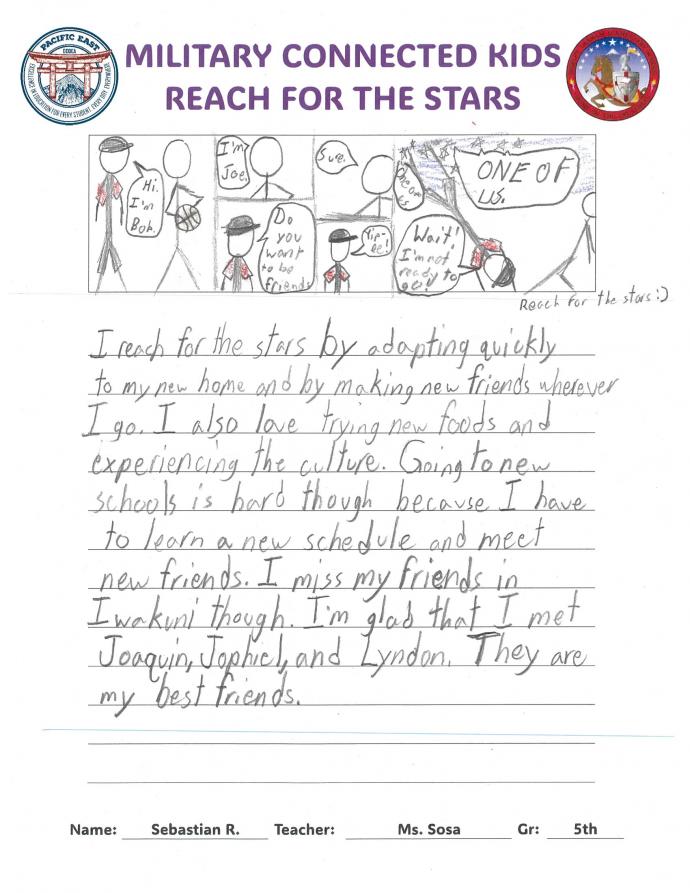 PACIFIC EAST
DODEA
EXCELLENCE IN EDUCATION FOR EVERY STUDENT, EVERY DAY, EVERYWHERE
MILITARY CONNECTED KIDS
REACH FOR THE STARS
Hi.
I'm
Bob.
I'm
Joe.
Do
you
want
to be
friends
Sure.
Yip-
ee!
ONE OF
US.
Wait!
I'm not
ready to
go!
Reach for the stars :)
I reach for the stars by adapting quickly
to my new home and by making new friends wherever
I go. I also love trying new foods and
experiencing the culture. Going to new
schools is hard though because I have
to learn a new schedule and meet
new friends. I miss my friends in
Iwakuni though. I'm glad that I met
Joaquin, Jophiel, and Lyndon. They are
my best friends.
Name: Sebastian R. Teacher: Ms. Sosa Gr: 5th